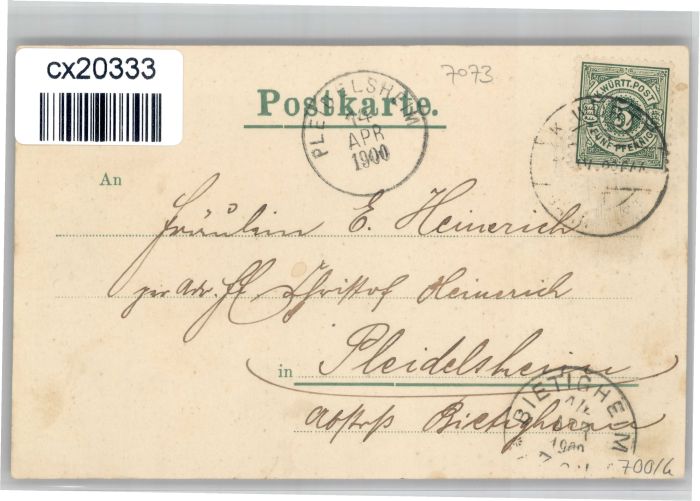 cx20333
7073
Postkarte.
PLEIDELSHEIM
14
APR
1900
WÜRTT. POST
5
FÜNF PFENNIG
An
Fräulein E. Heinerich
per Adr. H Christof Heinerich
in Pleidelsheim
Bietigheim
BIETIGHEIM
1900
700/6